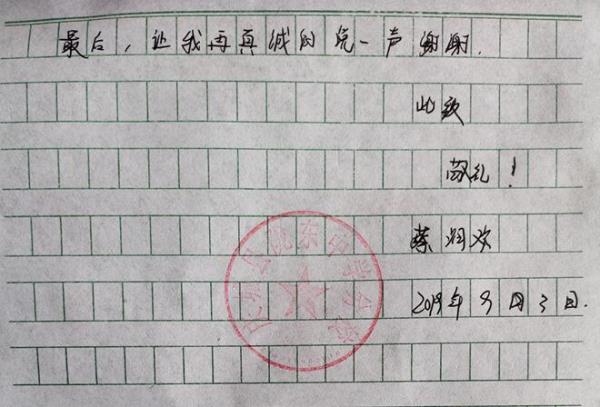 最后，让我再真诚的说一声谢谢.
此致
敬礼！
蔡润欢
2019年9月3日.
东中学